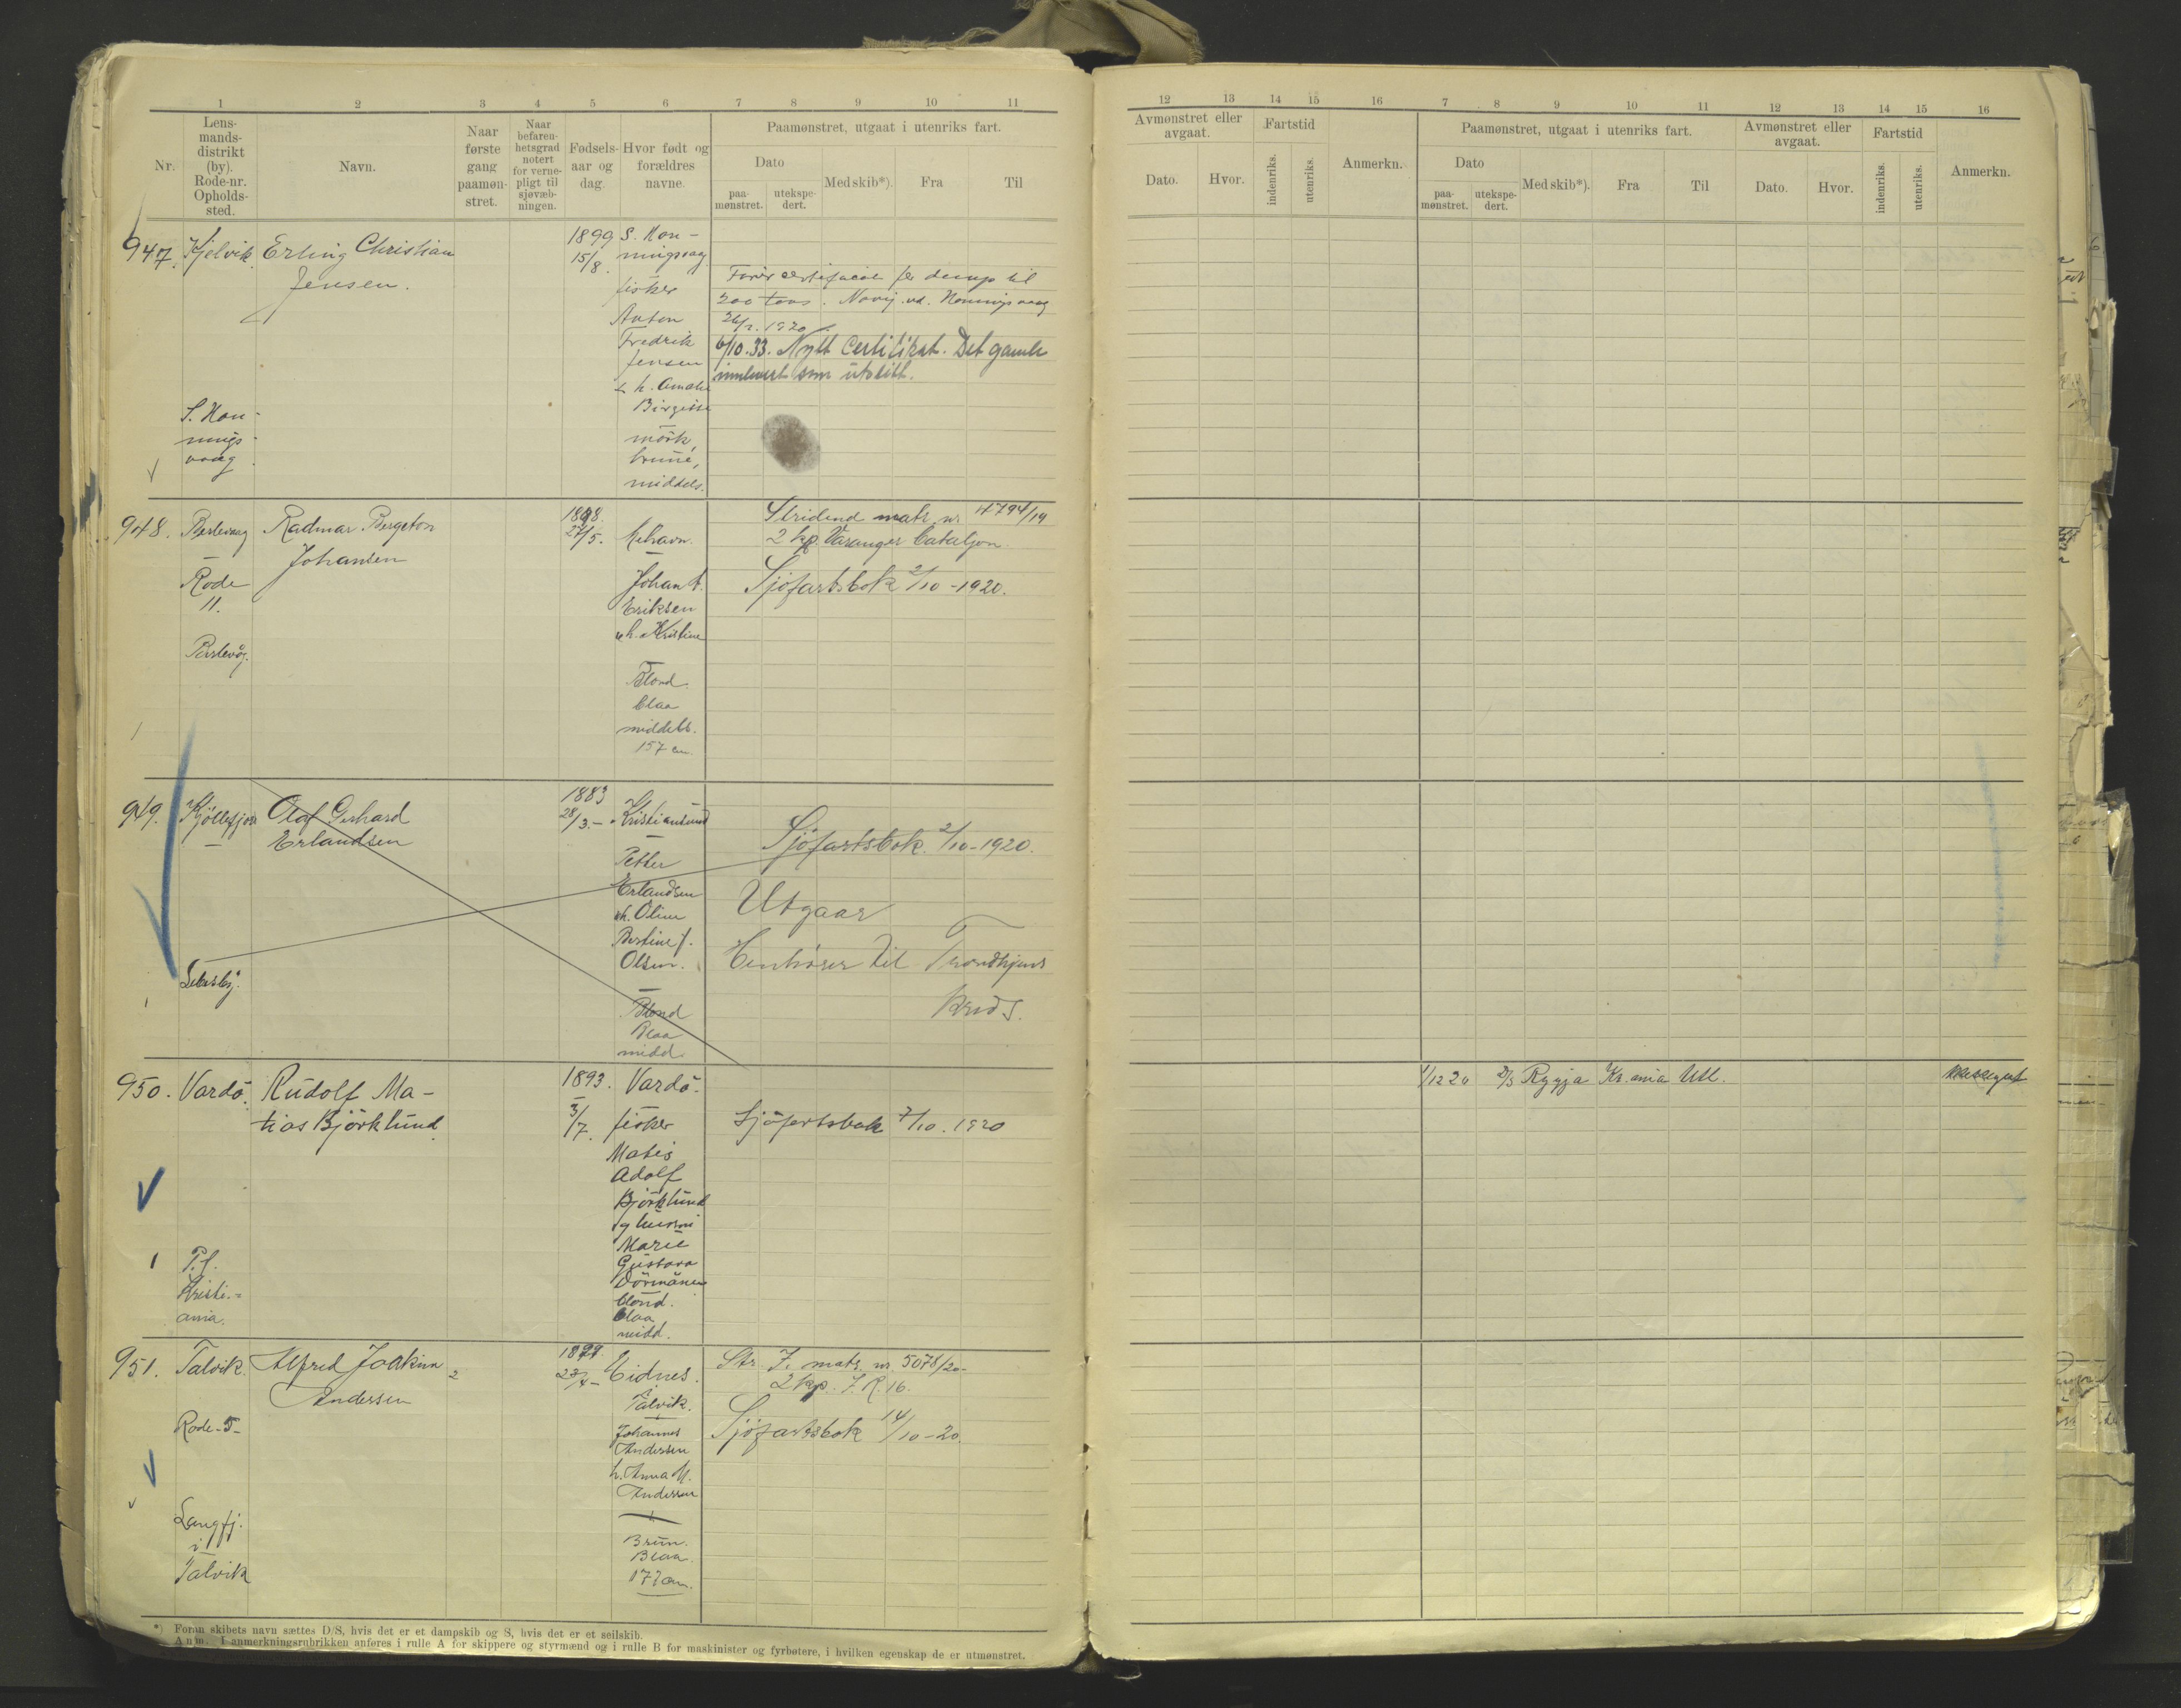 1 2 3 4 5 6 7 8 9 10 11
Nr.
Lens-
mands-
distrikt
(by).
Rode-nr.
Opholds-
sted.
Navn.
Naar
første
gang
paamøn-
stret.
Naar
befaren-
hetsgrad
notert
for verne-
pligt til
sjøvæb-
ningen.
Fødsels-
aar og
dag.
Hvor født og
forældres
navne.
Paamønstret, utgaat i utenriks fart.
Dato
paa-
mønstret.
utekspe-
dert.
Med skib*).
Fra
Til
947. Kjelvik. Erling Christian
Jensen.
1899
15/8.
S. Hon-
ningsvag
fisker
Anton
Fredrik
Jensen
h. Amalie
Birgitte
mörk,
brune,
middels.
til
200 tons. Navig. vd. Honningsvaag
1920
6/10.33. Nytt Certifikat. Det gamle
innlevert som utslitt.
S. Hon-
nings-
vaag.
948. Berlevaag Radmar Bergeton
Johansen
Rode
11.
Berlevåg.
1898.
27/5.
Mehavn.
Johan A.
Eriksen
h. Kristine
Blond.
blaa
middels.
157 cm.
Stridend matr. nr 4794/19
2 kp. Varanger bataljon
Sjöfartsbok 2/10-1920.
949. Kjöllefjord Olaf Gerhard
Erlandsen
Lebesby.
1883
28/3.-
Kristiansund
Petter
Erlandsen
h. Oline
Bertine f.
Olsen.
Blond
Blaa
midd.
Sjöfartsbok. 2/10-1920.
Utgaar
Henhører til Trondhjems
kreds.
950. Vardö. Rudolf Ma-
tias Björklund
P.t.
Kristi-
ania.
1893.
3/7.
Vardö.
fisker
Matis
Adolf
Björklund
og hustru
Marie
Gustava
blond.
blaa
midd.
Sjöfartsbok 7/10.1920
951. Talvik. Alfred Joakim
Andersen
Rode-5-
Langfj.
i
Talvik
23/4-
Eidnes.
Talvik.
Johannes
Andersen
h. Anna M.
Andersen
Brun.
Blaa.
Str. I. matr. nr 5078/20-
2 kp. I.R. 16.
Sjöfartsbok 14/10-20.
*) Foran skibets navn sættes D/S, hvis det er et dampskib og S, hvis det er et seilskib.
Anm. I anmerkningsrubrikken anføres i rulle A for skippere og styrmænd og i rulle B for maskinister og fyrbøtere, i hvilken egenskap de er utmønstret.
12 13 14 15 16 7 8 9 10 11 12 13 14 15 16
Avmønstret eller
avgaat.
Dato.
Hvor.
Fartstid
indenriks.
utenriks.
Anmerkn.
Paamønstret, utgaat i utenriks fart.
Dato
paa-
mønstret.
utekspe-
dert.
Med skib*).
Fra
Til
Avmønstret eller
avgaat.
Dato.
Hvor.
Fartstid
indenriks.
utenriks.
Anmerkn.
1/12 20 Rygja Kr.ania Utl.